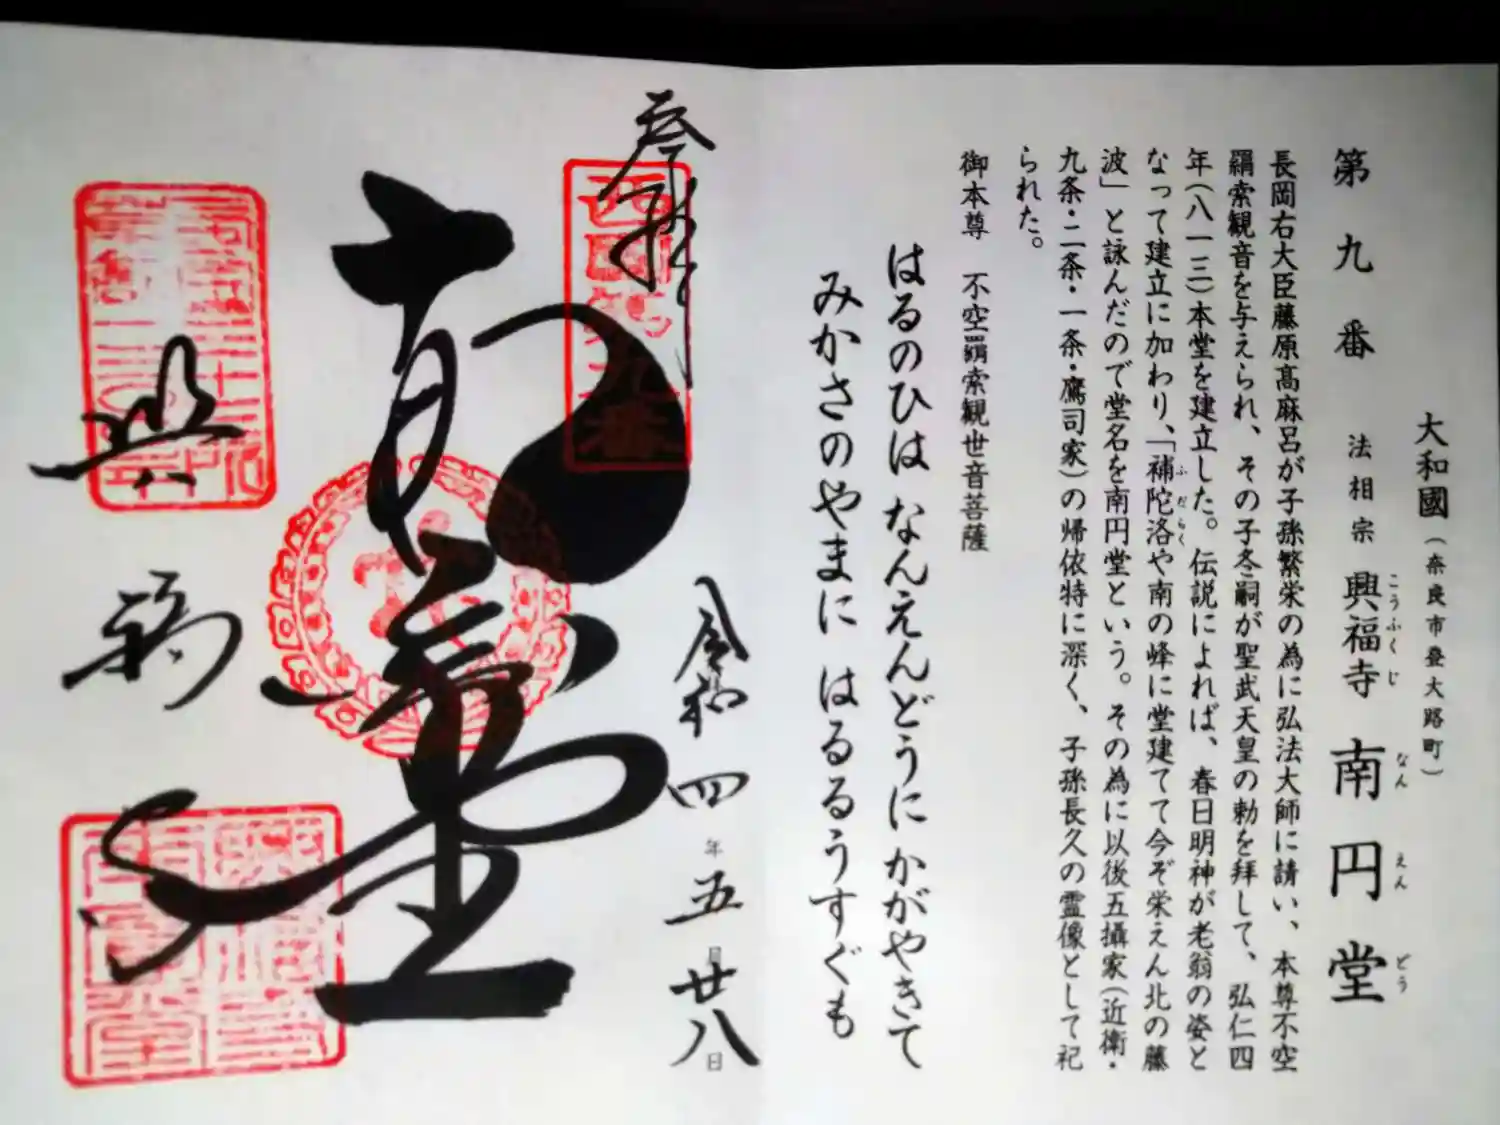 大和國(奈良市登大路町)
第九番 法相宗 興福寺 南円堂
こうふくじ なんえんどう
長岡右大臣藤原高麻呂が子孫繁栄の為に弘法大師に請い、本尊不空
羂索観音を与えられ、その子冬嗣が聖武天皇の勅を拝して、弘仁四
年(八一三)本堂を建立した。伝説によれば、春日明神が老翁の姿と
なって建立に加わり、「補陀洛や南の峰に堂建てて今ぞ栄えん北の藤
ふだらく
波」と詠んだので堂名を南円堂という。その為に以後五攝家(近衛・
九条・二条・一条・鷹司家)の帰依特に深く、子孫長久の霊像として祀
られた。
御本尊 不空羂索観世音菩薩
はるのひは なんえんどうに かがやきて
みかさのやまに はるるうすぐも
奉拝
西国第九番
令和四年五月廿八日
南円堂
興福寺